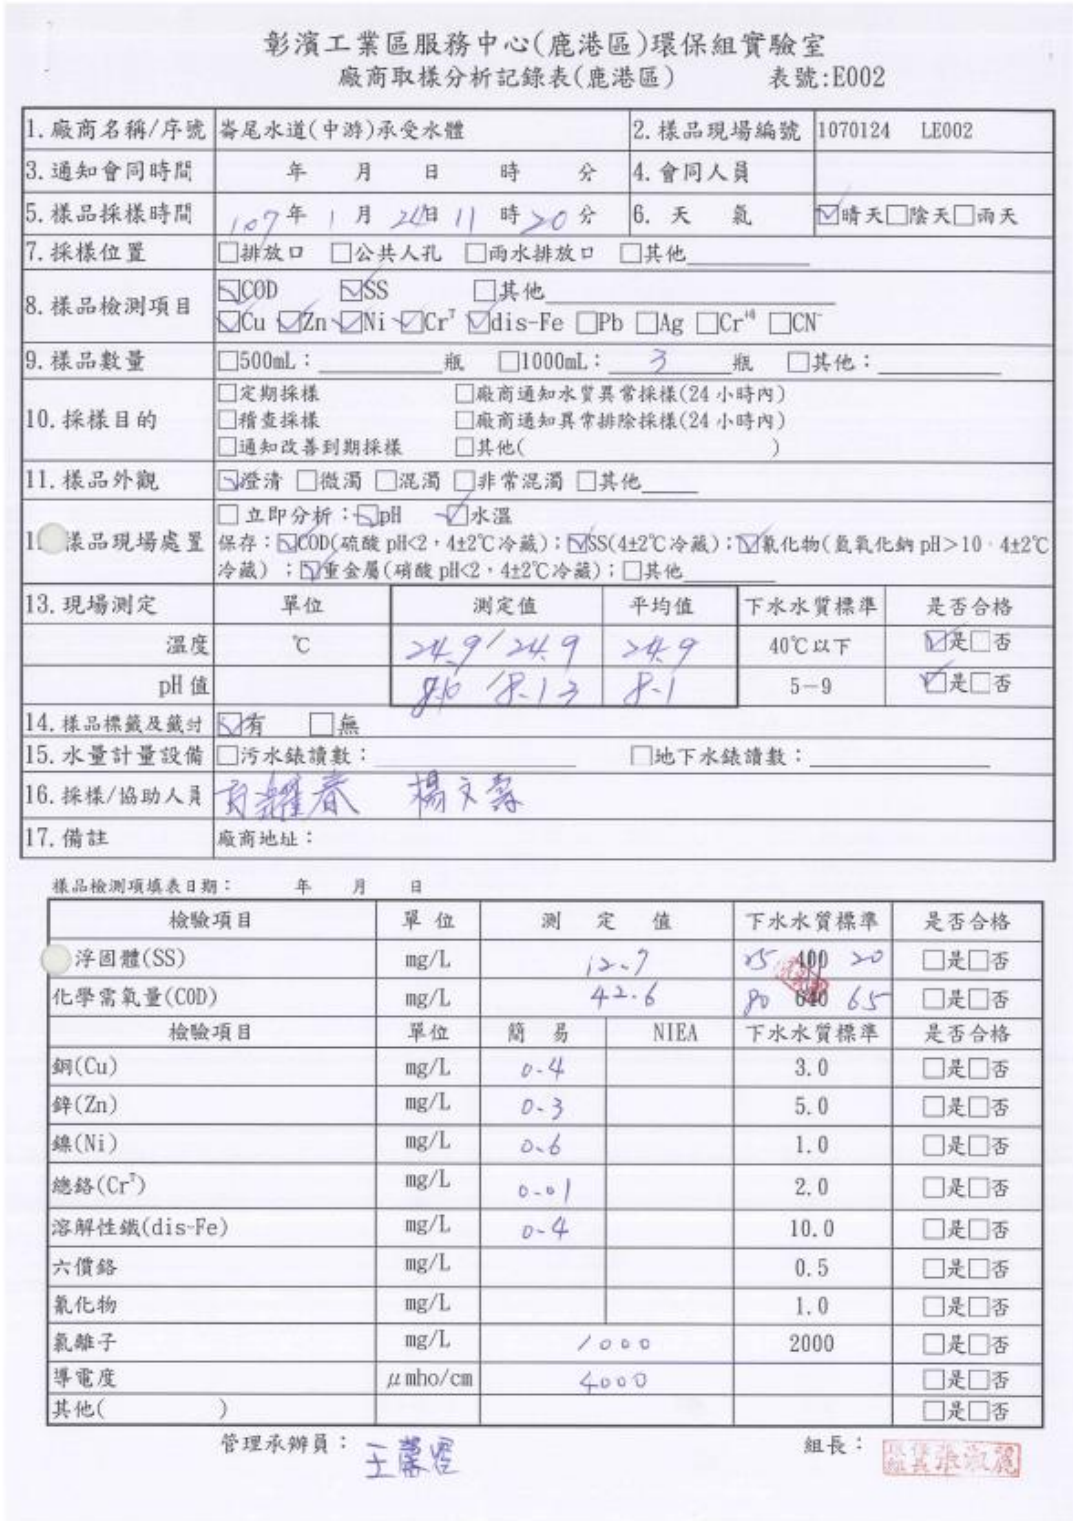 彰濱工業區服務中心(鹿港區)環保組實驗室
廠商取樣分析記錄表(鹿港區) 表號:E002
1.廠商名稱/序號 崙尾水道(中游)承受水體 2.樣品現場編號 1070124 LE002
3.通知會同時間 年 月 日 時 分 4.會同人員
5.樣品採樣時間 107年 1 月 24日 11 時 20 分 6. 天 氣 ☑晴天□陰天□雨天
7.採樣位置 □排放口 □公共人孔 □雨水排放口 □其他
8.樣品檢測項目 ☑COD ☑SS □其他
☑Cu ☑Zn ☑Ni ☑Cr⁷ ☑dis-Fe □Pb □Ag □Cr⁺⁶ □CN⁻
9.樣品數量 □500mL: 瓶 □1000mL: 3 瓶 □其他:
10.採樣目的 □定期採樣 □廠商通知水質異常採樣(24小時內)
□稽查採樣 □廠商通知異常排除採樣(24小時內)
□通知改善到期採樣 □其他( )
11.樣品外觀 ☑澄清 □微濁 □混濁 □非常混濁 □其他
樣品現場處置 □立即分析:☑pH ☑水溫
保存:☑COD(硫酸pH<2,4±2℃冷藏);☑SS(4±2℃冷藏);☑氰化物(氫氧化鈉pH>10,4±2℃
冷藏);☑重金屬(硝酸pH<2,4±2℃冷藏);□其他
13.現場測定 單位 測定值 平均值 下水水質標準 是否合格
溫度 ℃ 24.9/24.9 24.9 40℃以下 ☑是□否
pH值 8.1 5-9 ☑是□否
14.樣品標籤及籤封 ☑有 □無
15.水量計量設備 □污水錶讀數: □地下水錶讀數:
16.採樣/協助人員 楊文壽
17.備註 廠商地址:
樣品檢測項填表日期: 年 月 日
檢驗項目 單位 測 定 值 下水水質標準 是否合格
浮固體(SS) mg/L 12.7 25 400 20 □是□否
化學需氧量(COD) mg/L 42.6 80 640 65 □是□否
檢驗項目 單位 簡 易 NIEA 下水水質標準 是否合格
銅(Cu) mg/L 0.4 3.0 □是□否
鋅(Zn) mg/L 0.3 5.0 □是□否
鎳(Ni) mg/L 0.6 1.0 □是□否
總鉻(Cr⁷) mg/L 0.01 2.0 □是□否
溶解性鐵(dis-Fe) mg/L 0.4 10.0 □是□否
六價鉻 mg/L 0.5 □是□否
氰化物 mg/L 1.0 □是□否
氯離子 mg/L 1000 2000 □是□否
導電度 μmho/cm 4000 □是□否
其他( ) □是□否
管理承辦員: 組長: 張淑麗